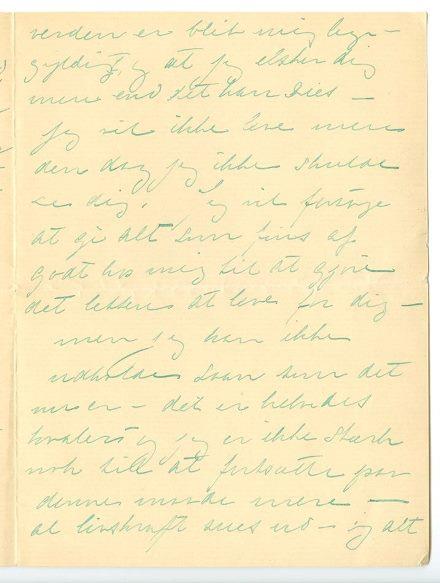 verden er blit mig lige-
gyldigt, og at jeg elsker dig
mere end det kan sies —
Jeg vil ikke leve mere
den dag jeg ikke skulde
se dig. Jeg vil forsøge
at gi alt som fins af
godt hos mig til at gjøre
det lettere at leve for dig —
men jeg kan ikke
udholde saan som det
nu er — det er helvedes
kvaler og jeg er ikke stærk
nok till at fortsætte paa
denne maade mere —
al livskraft sies ud — og alt